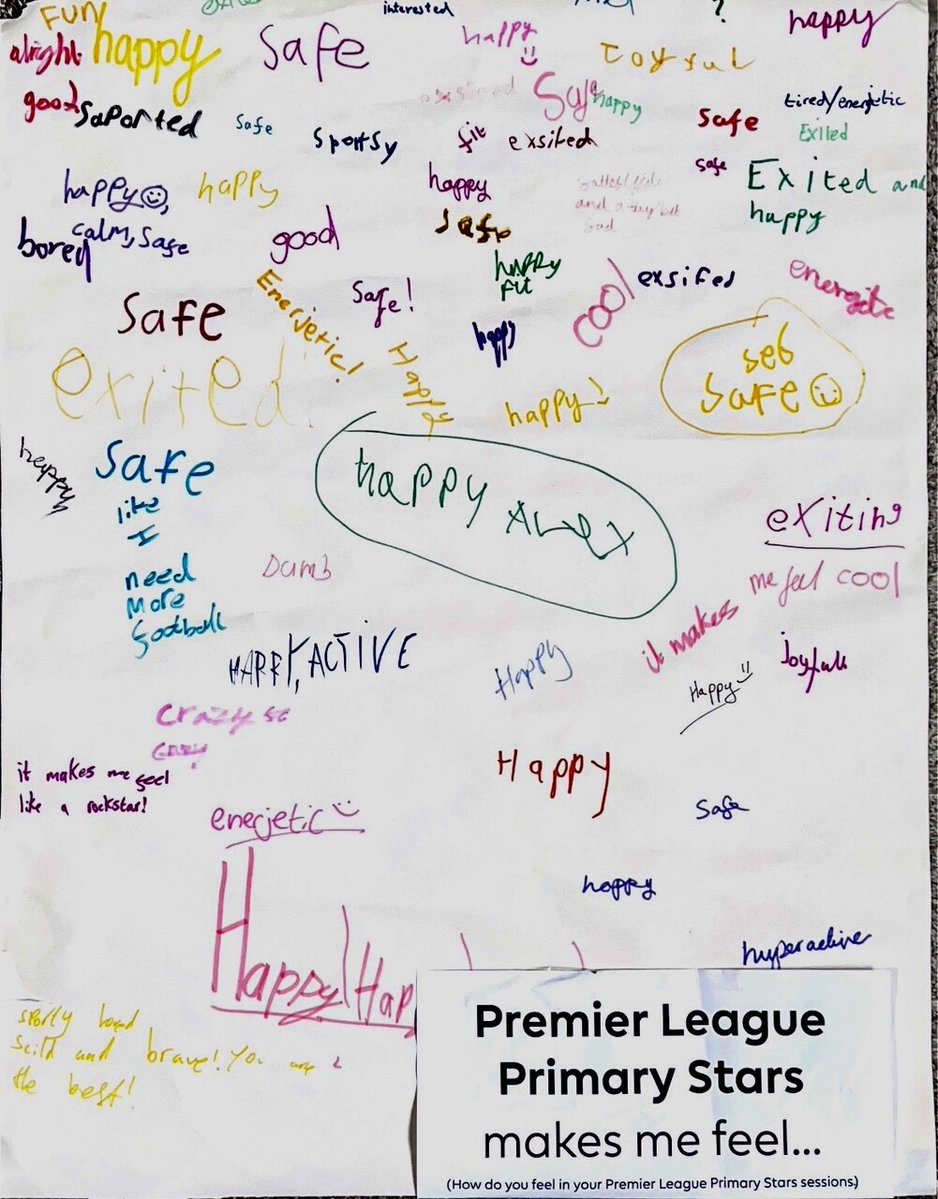 interested
?
FUN
happy
alright
happy
safe
happy
Joyful
good
saported
safe
sportsy
fit
exsited
Safe
happy
safe
tired/energetic
Exited
safe
happy☺,
calm, safe
happy
happy
and
sad
Exited and
happy
bored
good
safe
happy
fit
exsifed
energetic
safe
Enerjetic!
safe!
happy
cool
exited!
Happy
happy
seb
safe☺
heyppy
safe
like
I
need
more
football
happy ALex
exiting
Dumb
it makes
me feel cool
HAPPY, ACTIVE
Happy
Happy
joyfull
crazy
it makes me feel
like a rockstar!
Happy
safe
enerjetic
happy
Happy Hap
hyperactive
sportly
and brave! You are
the best!
Premier League
Primary Stars
makes me feel...
(How do you feel in your Premier League Primary Stars sessions)